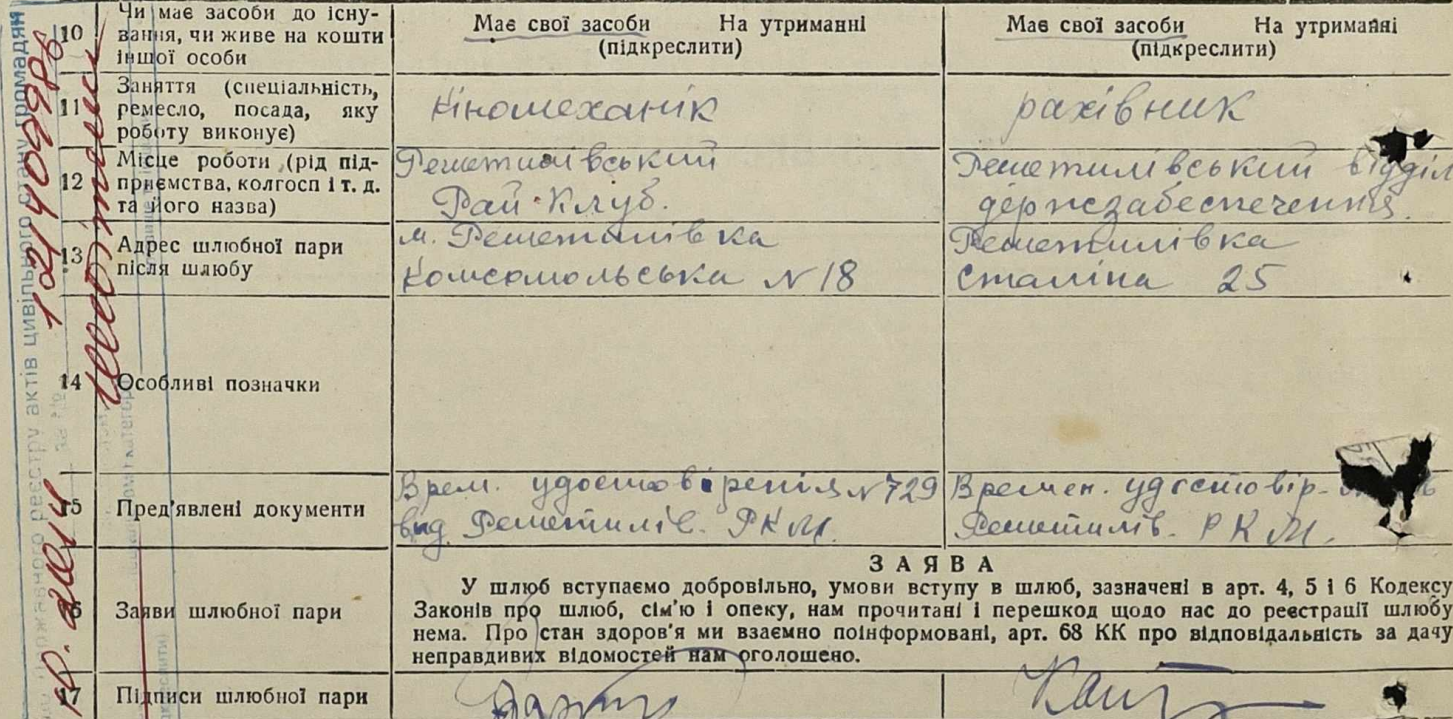 10 Чи має засоби до існу-
вання, чи живе на кошти
іншої особи
Має свої засоби На утриманні
(підкреслити)
Має свої засоби На утриманні
(підкреслити)
11 Заняття (спеціальність,
ремесло, посада, яку
роботу виконує)
Кіномеханік
рахівник
12 Місце роботи (рід під-
приємства, колгосп і т. д.
та його назва)
Решетилівський
Рай-Клуб.
Решетилівський відділ
держзабеспечення.
13 Адрес шлюбної пари
після шлюбу
м. Решетилівка
Комсомольська N 18
Решетилівка
Сталіна 25
14 Особливі позначки
15 Пред'явлені документи
Врем. удостовіренія N 729
від Решетилів. РКМ.
Времен. удостовір-
Решетилів. РКМ.
16 Заяви шлюбної пари
ЗАЯВА
У шлюб вступаємо добровільно, умови вступу в шлюб, зазначені в арт. 4, 5 і 6 Кодексу
Законів про шлюб, сім'ю і опеку, нам прочитані і перешкод щодо нас до реєстрації шлюбу
нема. Про стан здоров'я ми взаємно поінформовані, арт. 68 КК про відповідальність за дачу
неправдивих відомостей нам оголошено.
17 Підписи шлюбної пари
реєстру актів цивільного стану громадян